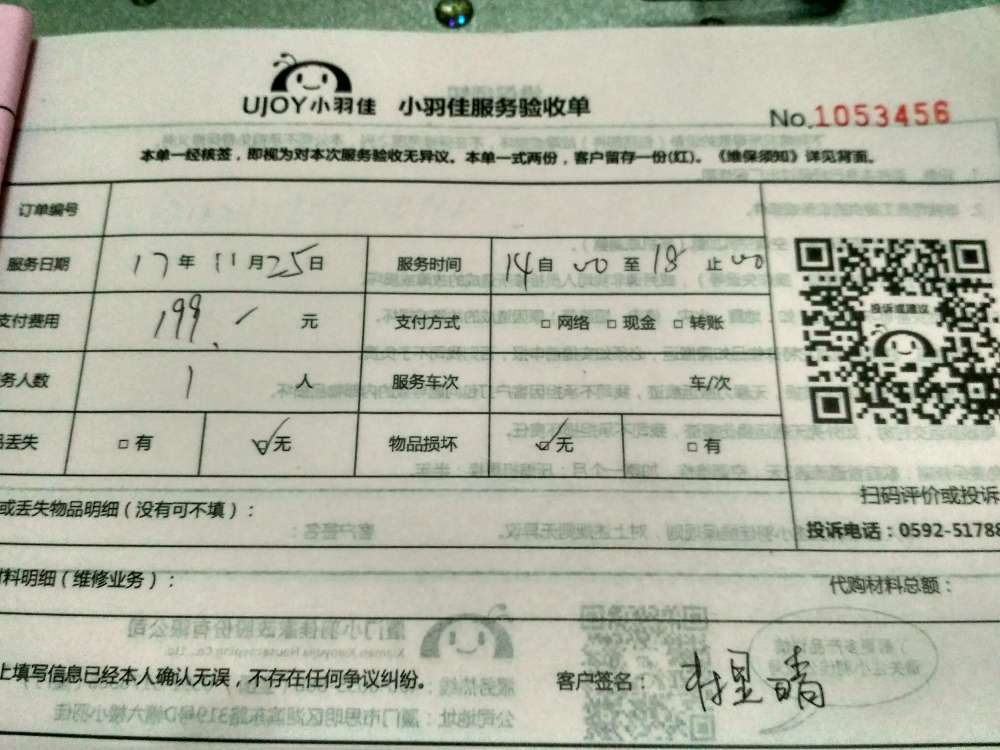 UJOY小羽佳 小羽佳服务验收单
No.1053456
本单一经核签，即视为对本次服务验收无异议。本单一式两份，客户留存一份(红)。《维保须知》详见背面。
订单编号
服务日期 17年 11月25日 服务时间 14自00至18止00
支付费用 199. 元 支付方式 □网络 □现金 □转账
务人数 1 人 服务车次 车/次
品丢失 □有 ☑无 物品损坏 ☑无 □有
投诉或建议
扫码评价或投诉
投诉电话：0592-5178
或丢失物品明细（没有可不填）：
材料明细（维修业务）： 代购材料总额：
上填写信息已经本人确认无误，不存在任何争议纠纷。 客户签名：